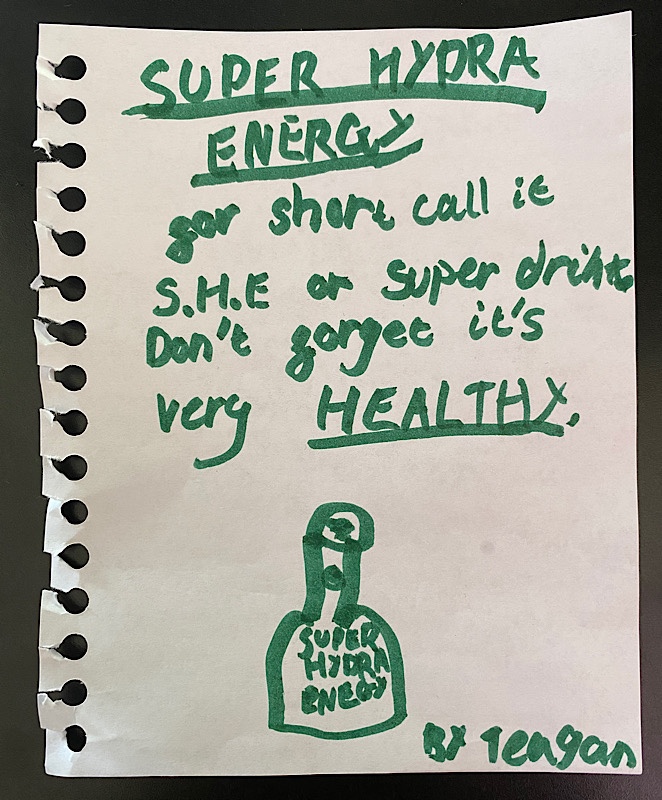 SUPER HYDRA
ENERGY
for short call it
S.H.E or super drink.
Don't forget it's
very HEALTHY.
SUPER
HYDRA
ENEGY
BY Teagan